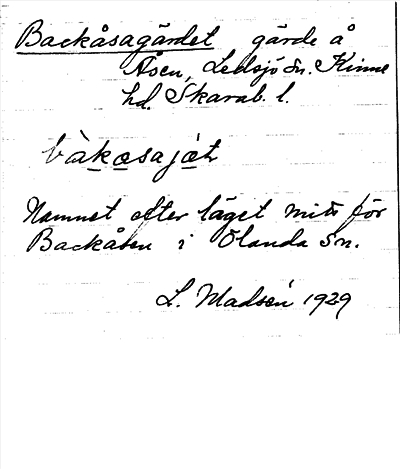 Backåsagärdet gärde å
Åsen, Ledsjö sn. Kinne
hd. Skarab. l.
bàkɑsajæ̀t
Namnet efter läget mitt för
Backåsen i Ölanda sn.
L. Madsén 1929